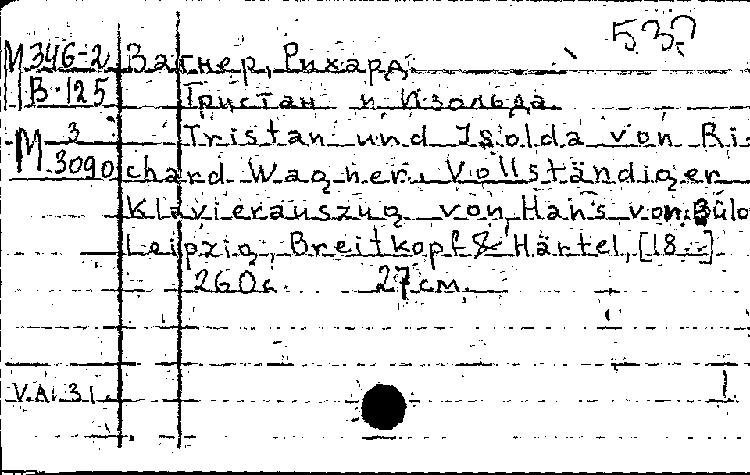 53?
М346-2 Вагнер, Рихард.
В-125 Тристан и Изольда.
М 3 Tristan und Isolda von Ri-
3090 chard Wagner. Vollständiger
Klavierauszug von Hans von Bülo
Leipzig, Breitkopf & Härtel, [18..]
260с. 27см.
V.A. 31.
1